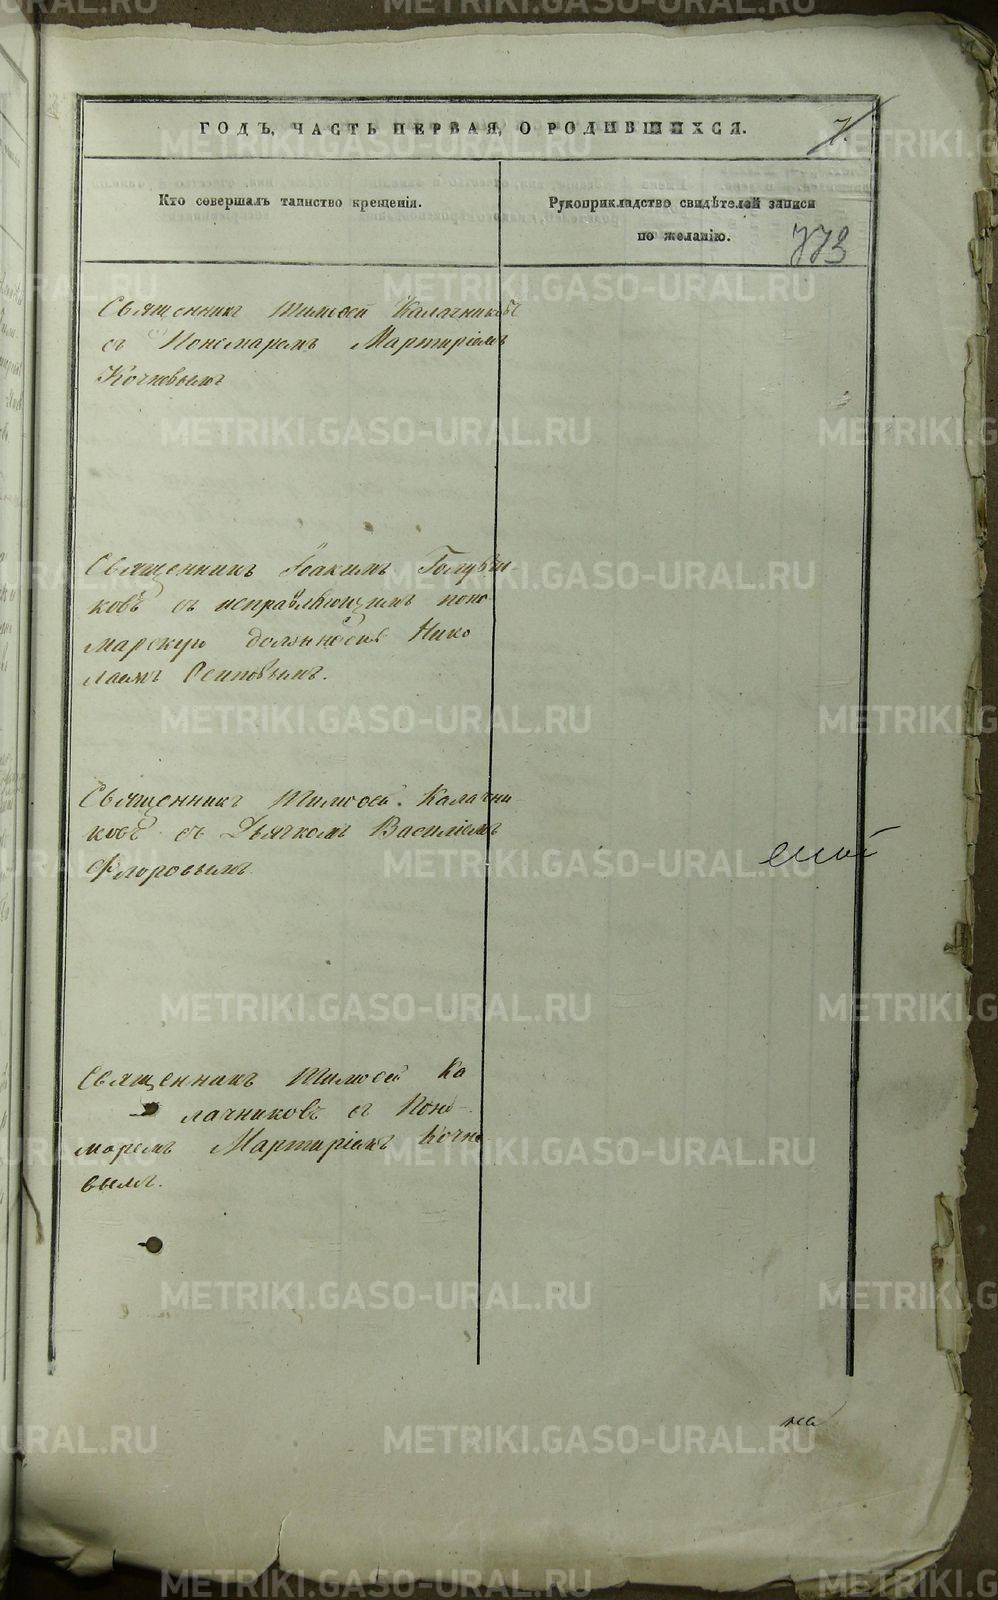 METRIKI.GASO-URAL.RU
ГОДЪ, ЧАСТЬ ПЕРВАЯ, О РОДИВШИХСЯ.
7.
Кто совершалъ таинство крещенія.
Рукоприкладство свидѣтелей записи
по желанію.
773
Священникъ Тимофей Калачниковъ
съ Пономаремъ Мартиріемъ
Кочневымъ
Священникъ Іоакимъ Голубчи
ковъ съ исправляющимъ поно
марскую должность Нико
лаемъ Осиповымъ.
Священникъ Тимофей Калачни
ковъ съ Дьячкомъ Василіемъ
Флоровымъ
Священникъ Тимофей Ка
лачниковъ съ Поно-
маремъ Мартиріемъ Кочне
вымъ.